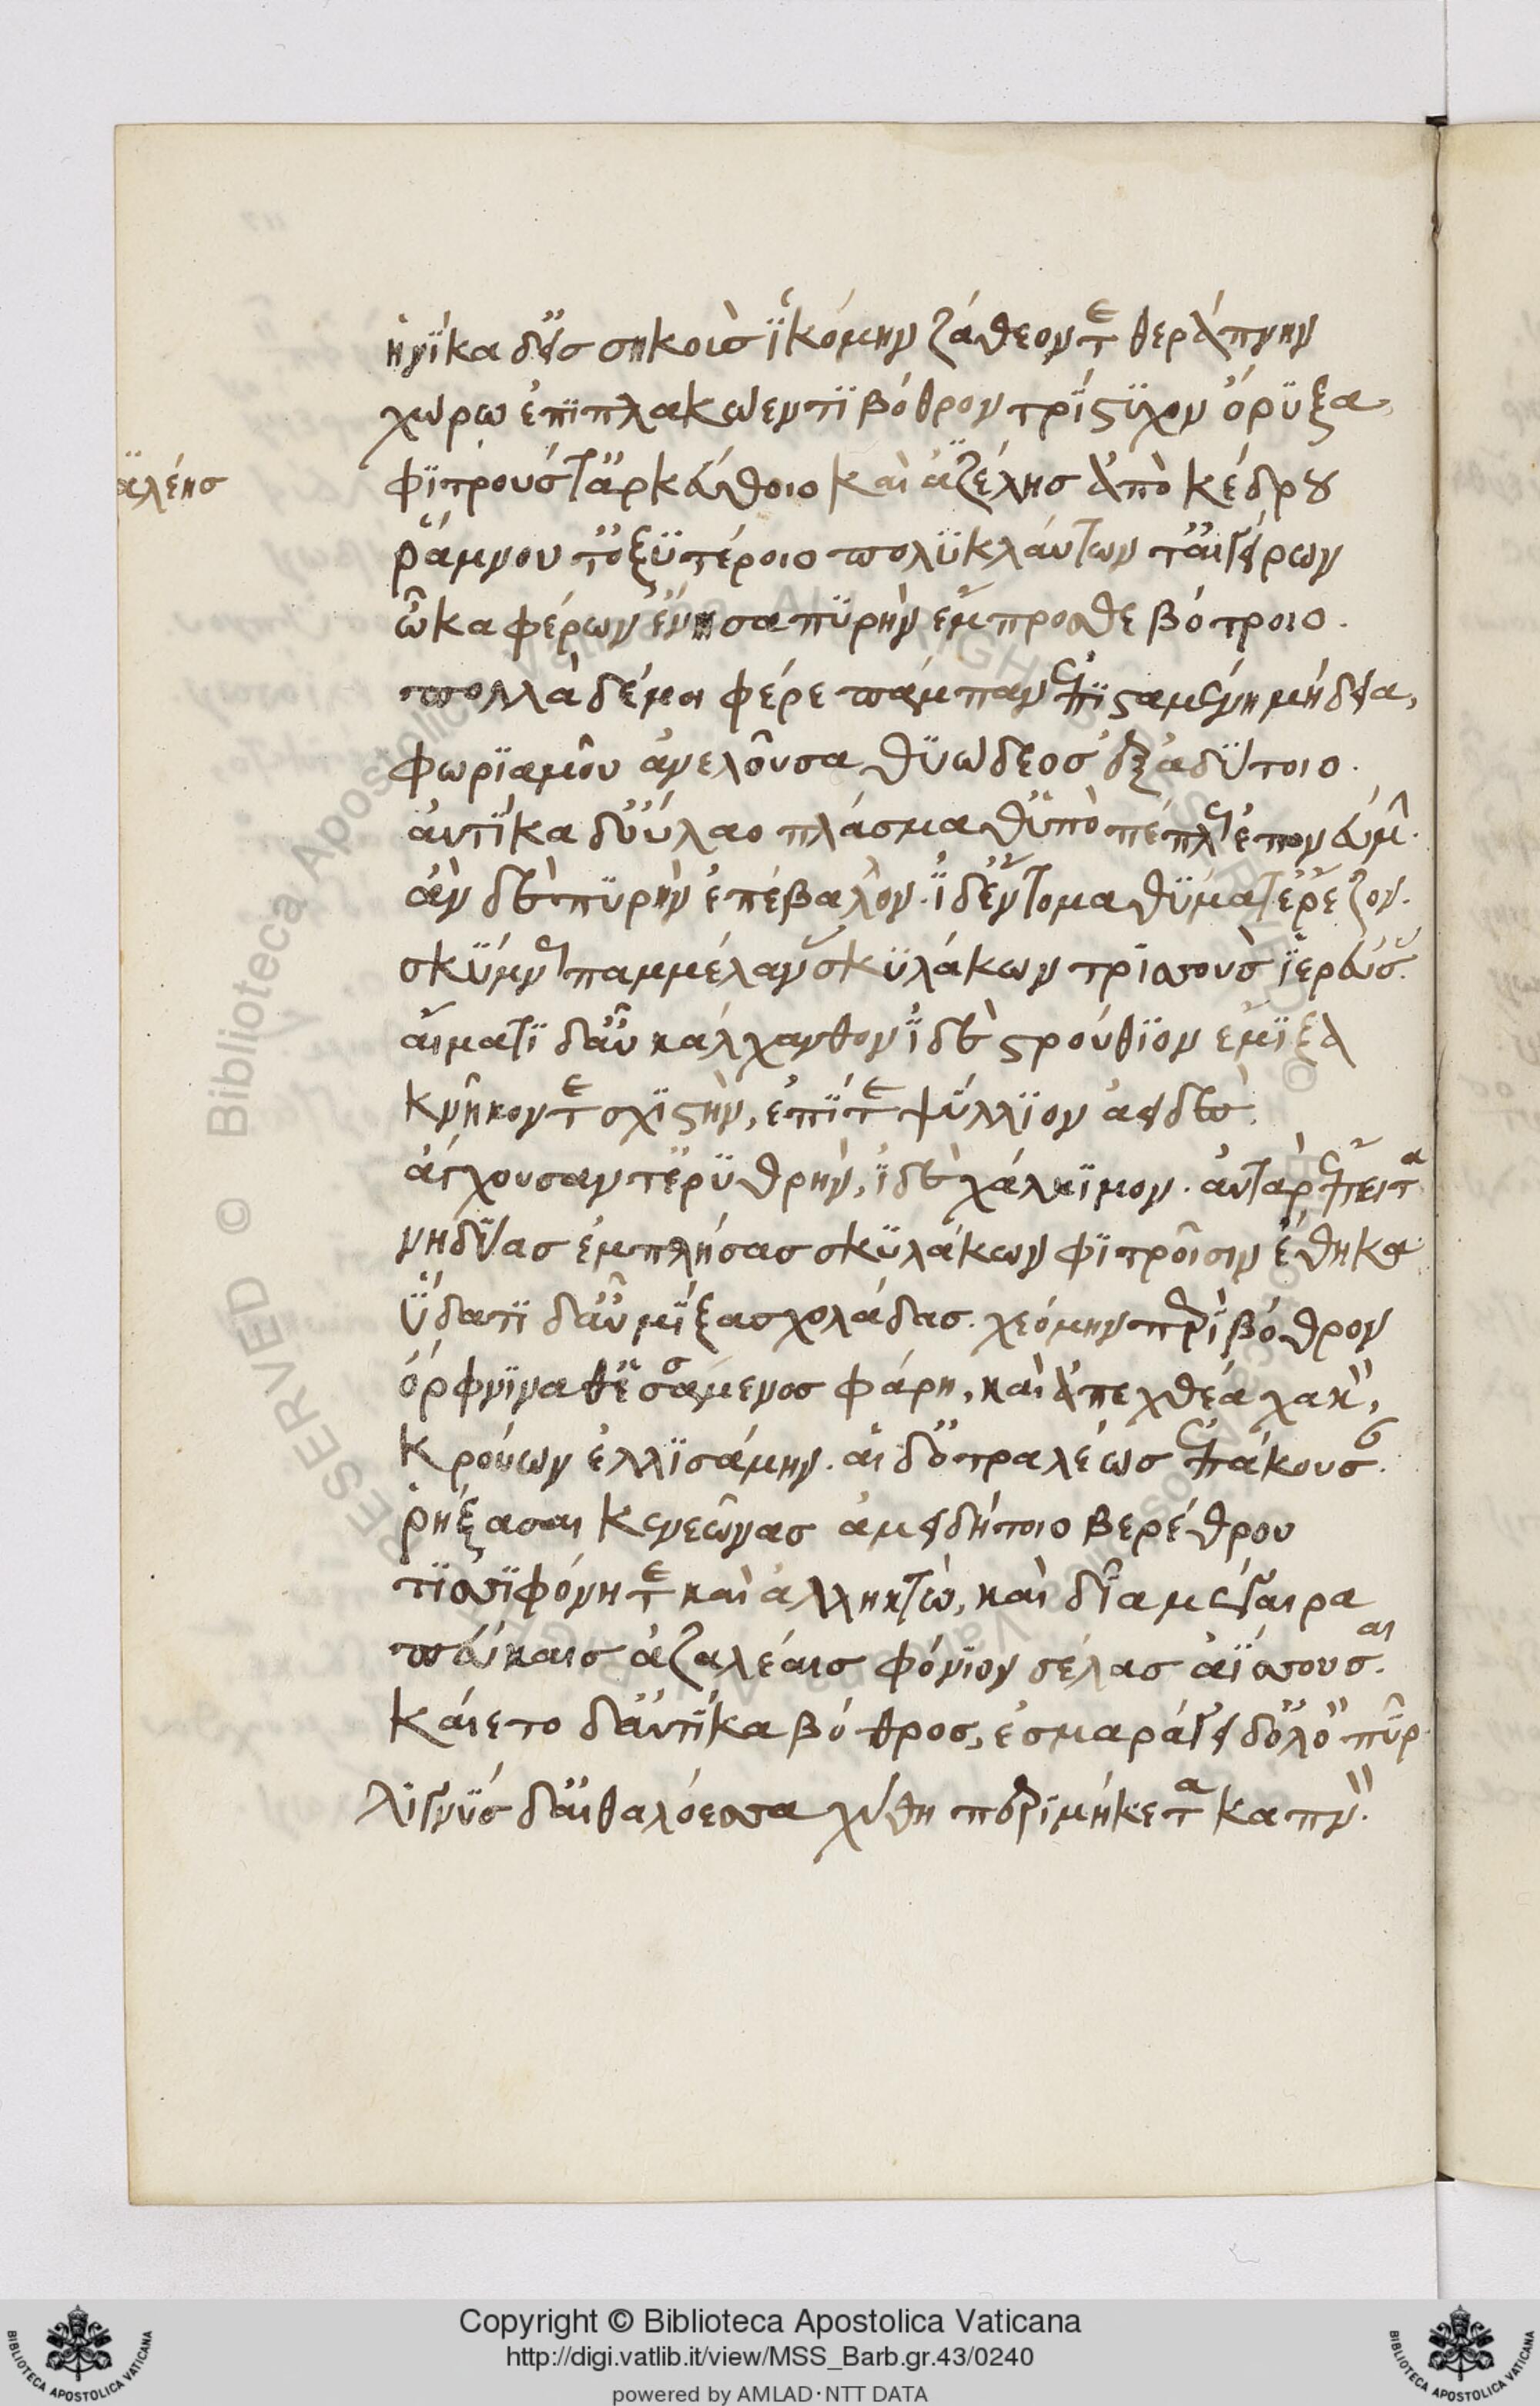 ἡνίκα δ' εἰς σηκοὺς ἱκόμην ζάθεόν τε θεράπνην
χώρω ἐπὶ πλακόεντι βόθρον τρίστιχον ὄρυξα,
αλέης
φιτροὺς τ' ἀρκεύθοιο καὶ ἀζέλης ἀπὸ κέδρου
ῥάμνου τ' ὀξυτέροιο πολυκλαύτων τ' αἰγείρων
ὦκα φέρων ἔνησα πυρὴν ἔμπροσθε βότροιο.
πολλὰ δέ μοι φέρε πάμπαν ἐπισταμένη μήδεια,
φωριαμοῦ ἀνελοῦσα θυώδεος ἐξ ἀδύτοιο.
αὐτίκα δ' οὐλὰο πλάσμαθ' ὑπὸ πέπλ ἐπον
ἂν δὲ πυρὴν ἐπέβαλλον. ἰδ' ἔντομα θύματ' ἔρεζον.
σκύμν παμμέλαν σκυλάκων τρισσοὺς ἱερεύσ.
αἵματι δ' αὖ κάλχανθον ἰδὲ στρούθιον ἔμιξα
κνῆκόν τε σχιστὴν, ἐπί τε ψύλλιον ἀειδὲς.
ἄγχουσάν τ' ἐρυθρὴν, ἰδὲ χάλκιμον. αὐτὰρ ἔπειτα
νηδύας ἐμπλήσας σκυλάκων φιτροῖσιν ἔθηκα
ὕδατι δ' αὖ μίξας χολάδας. χεόμην περὶ βόθρον
ὄρφνινα θ' ἑσσάμενος φάρη, καὶ ἀπεχθέα χακ,
κρούων ἐλλισάμην. αἱ δ' ὀτραλέως ἐπάκουσ.
ῥήξασαι κενεῶνας ἀμειδήτοιο βερέθρου
τισσιφόνη τε καὶ ἀλληκτὼ, καὶ δῖα μέγαιρα
πεύκαις ἀζαλέαις φόνιον σέλας ἀΐσσουσαι.
καίετο δ' αὐτίκα βόθρος, ἐσμαράγει δ' ὀλοὸ πῦρ.
λιγνὺς δ' αἰθαλόεσσα χύθη περιμήκετα καπν.
Copyright © Biblioteca Apostolica Vaticana
http://digi.vatlib.it/view/MSS_Barb.gr.43/0240
powered by AMLAD·NTT DATA